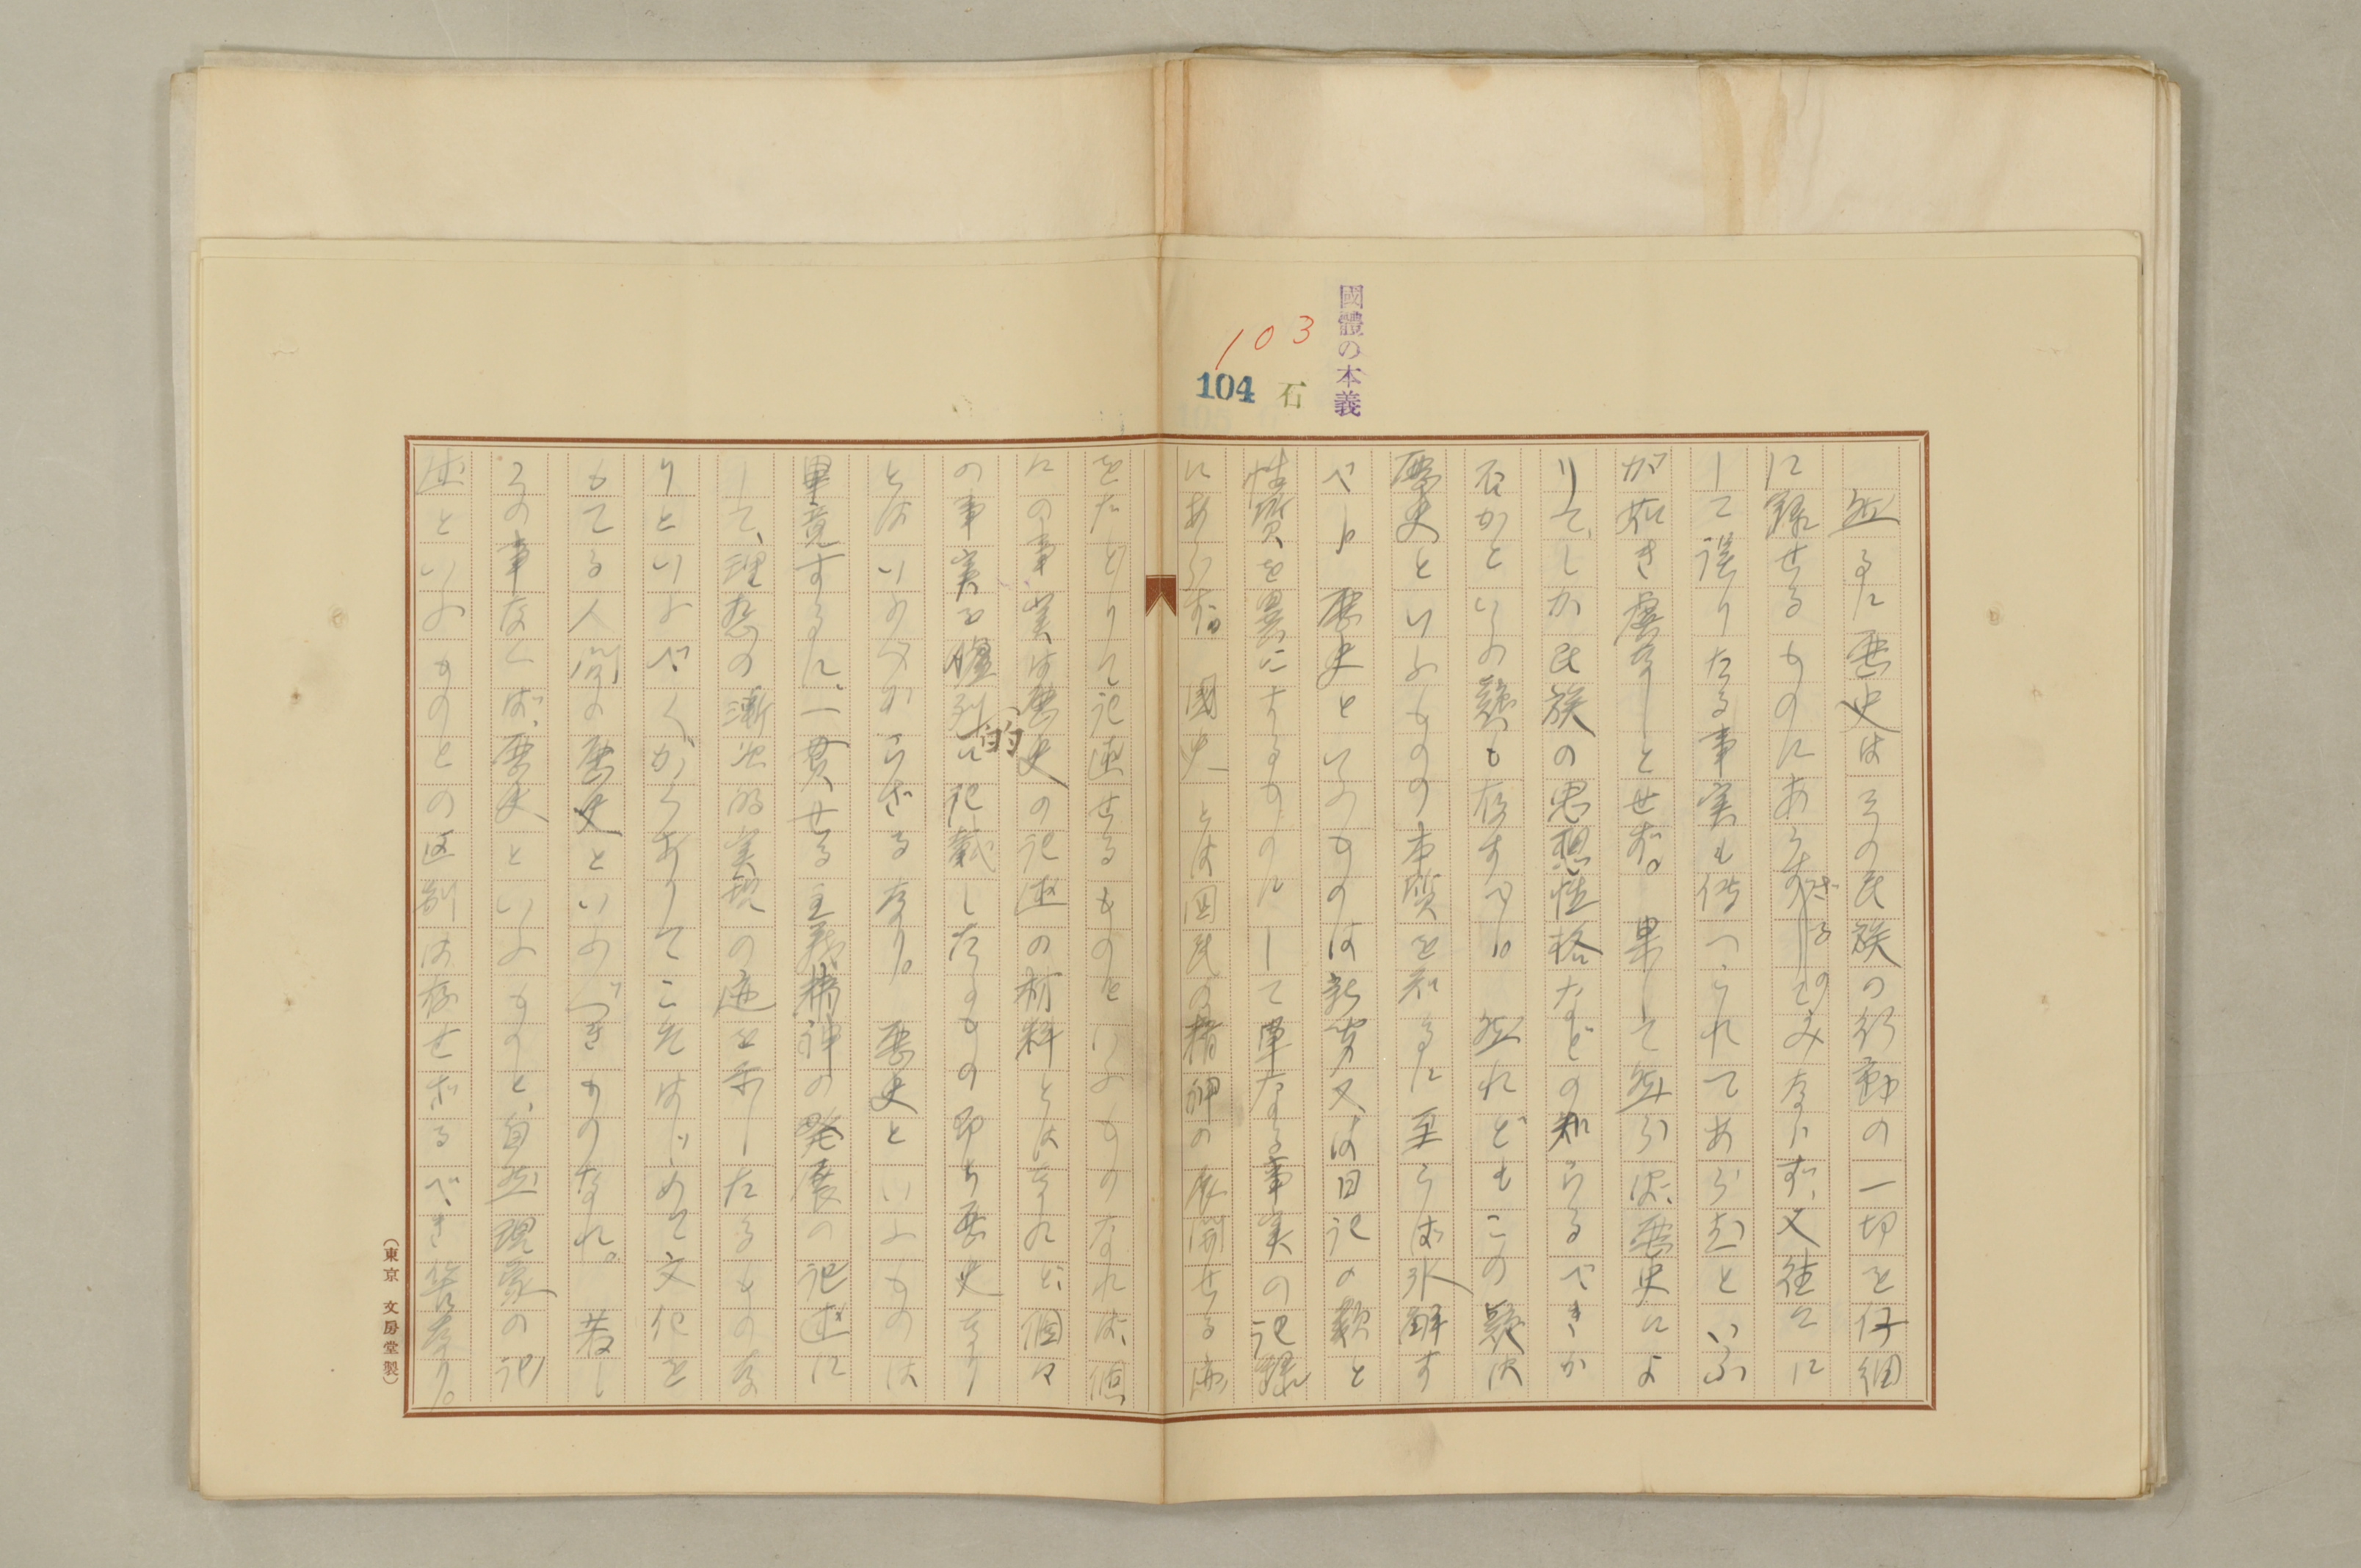 國體の本義
103
104
石
然るに歴史はその民族の行動の一切を仔細
に録せるものにあらざるのみならず、又往々に
して誤りたる事実も伝へられてあらむといふ
が如き虞なしとせず。果して然らば、歴史によ
りて、しか民族の思想性格などの知らるべきか
否かといふ疑も存すべし。然れどもこの疑は
歴史といふものの本質を知るに至らば氷解す
べし。歴史といふものは新聞又は日記の類と
性質を異にするものにして単なる事実の記録
にあらず。國史とは国民の精神の展開せる跡
をたどりて記述せるものをいふものなれば、個
々の事実は歴史の記述の材料とはなれど、個々
の事実を臚列的に記載したるもの即ち歴史なり
とはいふべからざるなり。歴史といふものは
畢竟するに、一貫せる主義精神の発展の記述に
して、理想の漸次的実現の跡を示したるものな
りといふべく、かくありてこそはじめて文化を
もてる人間の歴史といふべきものなれ。若し
その事なくば、歴史といふものと、自然現象の記
述といふものとの区別は存せざるべき筈なり。
（東京 文房堂製）